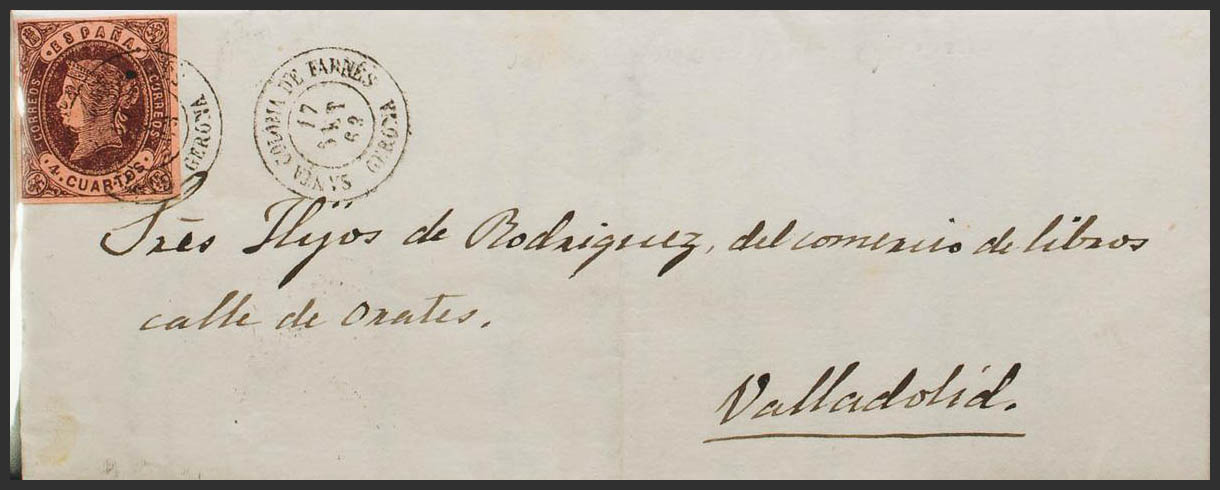 · ESPAÑA ·
CORREOS CORREOS
· 4. CUARTOS ·
GERONA
SANTA COLOMA DE FARNÉS
17
SET
63
GERONA
Srēs Hijos de Rodriguez, del comercio de libros
calle de Orates.
Valladolid.